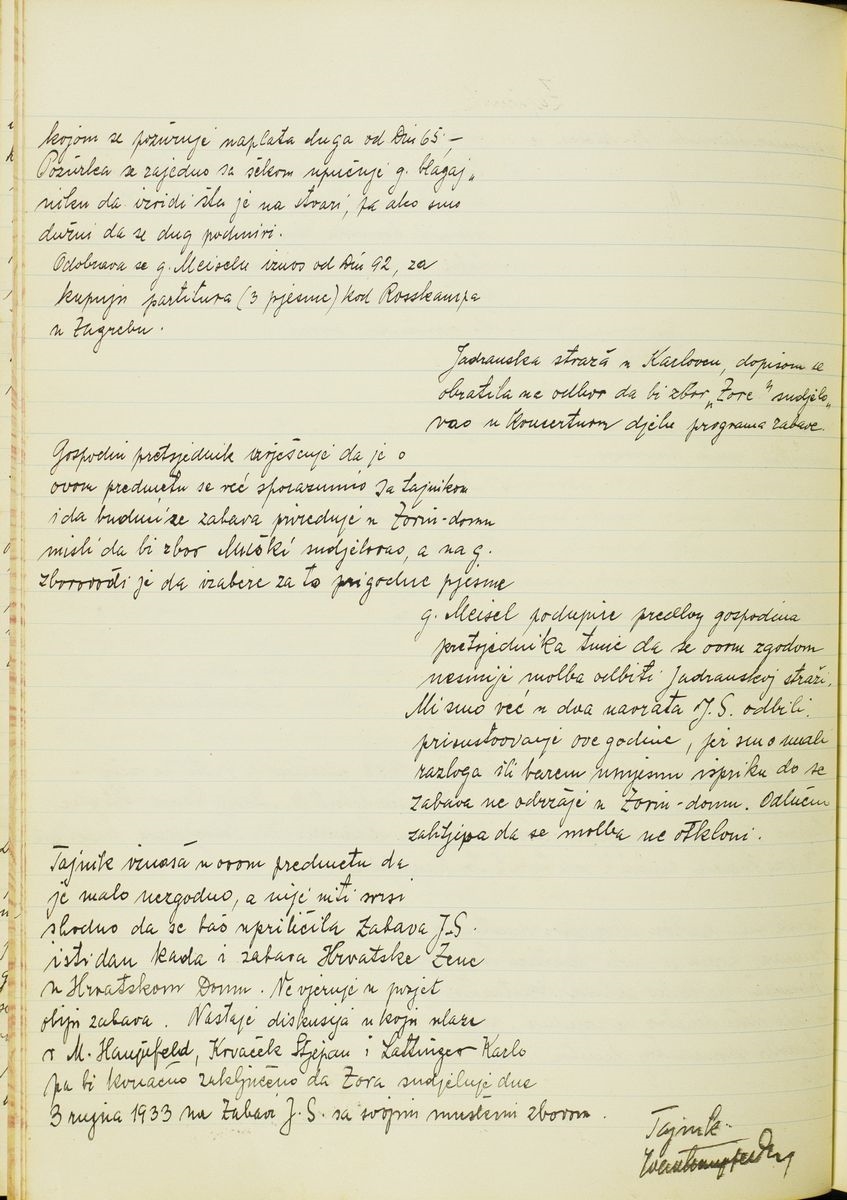 kojom se požuruje naplata duga od Din 65.-
Požurka se zajedno sa čekom upućuje g. blagaj„
niku da izvidi šta je na stvari, pa ako smo
dužni da se dug podmiri.
Odobrava se g. Meiselu iznos od Din 92, za
kupnju partitura (3 pjesme) kod Rosskampa
u Zagrebu.
Jadranska straža u Karlovcu, dopisom se
obratila na odbor da bi zbor „Zore" sudjelo„
vao u koncertnom djelu programa zabave.
Gospodin pretsjednik izvješćuje da je o
ovom predmetu se već sporazumio sa tajnikom
i da budući se zabava priređuje u Zorin-domu
misli da bi zbor Muški sudjelovao, a na g.
zborovođi je da izabere za to prigodne pjesme
g. Meisel podupire predlog gospodina
pretsjednika time da se ovom zgodom
nesmije molba odbiti Jadranskoj straži.
Mi smo već u dva navrata J.S. odbili
prisustvovanje ove godine, jer smo imali
razloga ili barem umjesnu ispriku da se
zabava ne održaje u Zorin-domu. Odlučno
zahtjeva da se molba ne otkloni.
Tajnik iznaša u ovom predmetu da
je malo nezgodno, a nije niti svrsi
shodno da se baš upriličila zabava J.S.
isti dan kada i zabava Hrvatske Žene
u Hrvatskom Domu. Ne vjeruje u posjet
obiju zabava. Nastaje diskusija u koju ulaze
M. Haujfeld, Krvaček Stjepan i Lattinger Karlo
pa bi konačno zaključeno da Zora sudjeluje dne
3 rujna 1933 na zabavi J.S. sa svojim muškim zborom.
Tajnik